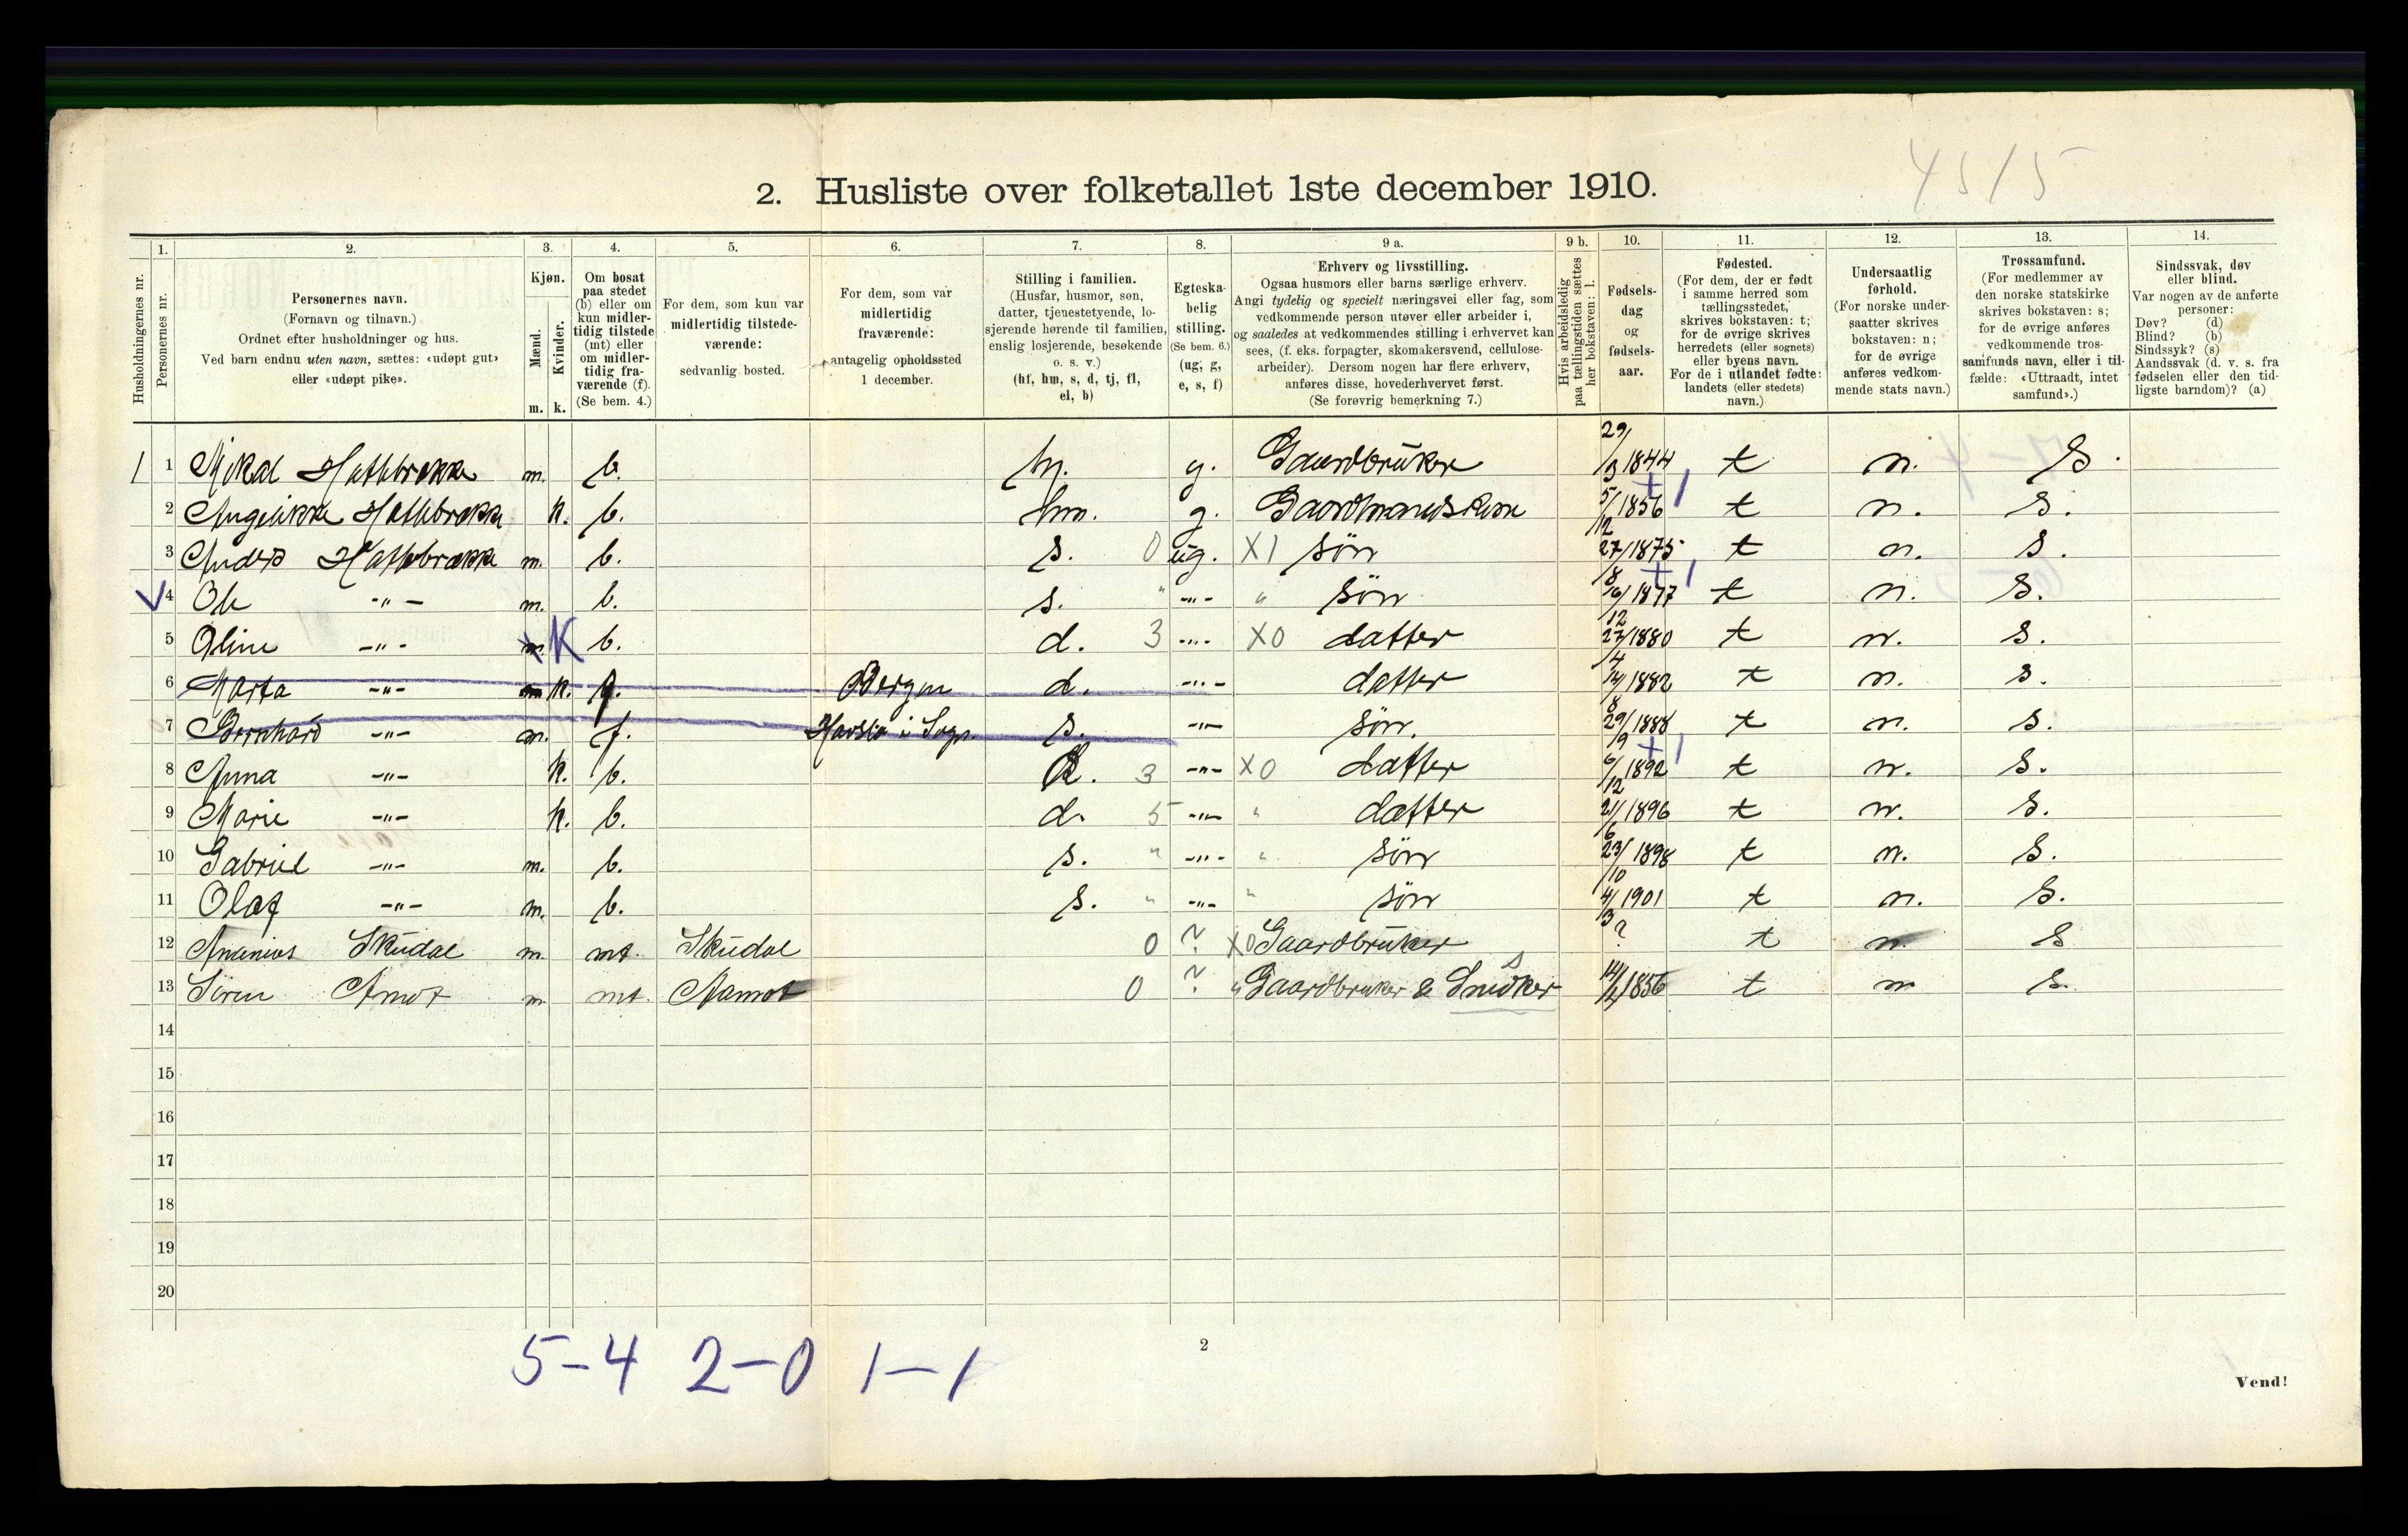 4515
2. Husliste over folketallet 1ste december 1910.
Husholdningernes nr.
1. Personernes nr.
2. Personernes navn.
(Fornavn og tilnavn.)
Ordnet efter husholdninger og hus.
Ved barn endnu uten navn, sættes: «udøpt gut»
eller «udøpt pike».
3. Kjøn.
Mænd. m.
Kvinder. k.
4. Om bosat
paa stedet
(b) eller om
kun midler-
tidig tilstede
(mt) eller
om midler-
tidig fra-
værende (f).
(Se bem. 4.)
5. For dem, som kun var
midlertidig tilstede-
værende:
sedvanlig bosted.
6. For dem, som var
midlertidig
fraværende:
antagelig opholdssted
1 december.
7. Stilling i familien.
(Husfar, husmor, søn,
datter, tjenestetyende, lo-
sjerende hørende til familien,
enslig losjerende, besøkende
o. s. v.)
(hf, hm, s, d, tj, fl,
el, b)
8. Egteska-
belig
stilling.
(Se bem. 6.)
(ug, g,
e, s, f)
9 a. Erhverv og livsstilling.
Ogsaa husmors eller barns særlige erhverv.
Angi tydelig og specielt næringsvei eller fag, som
vedkommende person utøver eller arbeider i,
og saaledes at vedkommendes stilling i erhvervet kan
sees, (f. eks. forpagter, skomakersvend, cellulose-
arbeider). Dersom nogen har flere erhverv,
anføres disse, hovederhvervet først.
(Se forøvrig bemerkning 7.)
9 b. Hvis arbeidsledig
paa tællingstiden sættes
her bokstaven: l.
10. Fødsels-
dag
og
fødsels-
aar.
11. Fødested.
(For dem, der er født
i samme herred som
tællingsstedet,
skrives bokstaven: t;
for de øvrige skrives
herredets (eller sognets)
eller byens navn.
For de i utlandet fødte:
landets (eller stedets)
navn.)
12. Undersaatlig
forhold.
(For norske under-
saatter skrives
bokstaven: n;
for de øvrige
anføres vedkom-
mende stats navn.)
13. Trossamfund.
(For medlemmer av
den norske statskirke
skrives bokstaven: s;
for de øvrige anføres
vedkommende tros-
samfunds navn, eller i til-
fælde: «Uttraadt, intet
samfund».)
14. Sindssvak, døv
eller blind.
Var nogen av de anførte
personer:
Døv? (d)
Blind? (b)
Sindssyk? (s)
Aandssvak (d. v. s. fra
fødselen eller den tid-
ligste barndom)? (a)
1 1 Mikal m. b. g. Gaardbruker 29/3 1844 t n. S.
2 Angelikke k. b. hm. g. 5/12 1856 t n. s.
3 Anders m. b. s. 0 ug. X1 søn 27/8 1875 t n. s.
4 Ole -"- m. b. s. " -"- " søn 16/12 1877 t n. s.
5 Oline -"- K b. d. 3 -"- X0 datter 27/4 1880 t n. s.
6 Marta -"- k. f. Bergen d. -"- datter 14/8 1882 t n. s.
7 Bernhard -"- m. f. Hafslo i Sogn. s. -"- søn. 29/9 1888 t n. s.
8 Anna -"- k. b. d. 3 -"- X0 datter 6/12 1892 t n. s.
9 Marie -"- k. b. d. 5 -"- " datter 21/6 1896 t n. s.
10 Gabriel -"- m. b. s. " -"- " søn 23/10 1898 t n. s.
11 Olaf -"- m. b. s. " -"- " søn 4/3 1901 t n. s.
12 Ananias Skudal m. mt. Skudal 0 ? X0 Gaardbruker ? t n. S
13 Sören Amot m mt. Aamot 0 ? " Gaardbruker & Snedker 1856 t n s.
14
15
16
17
18
19
20
5-4 2-0 1-1
2
Vend!